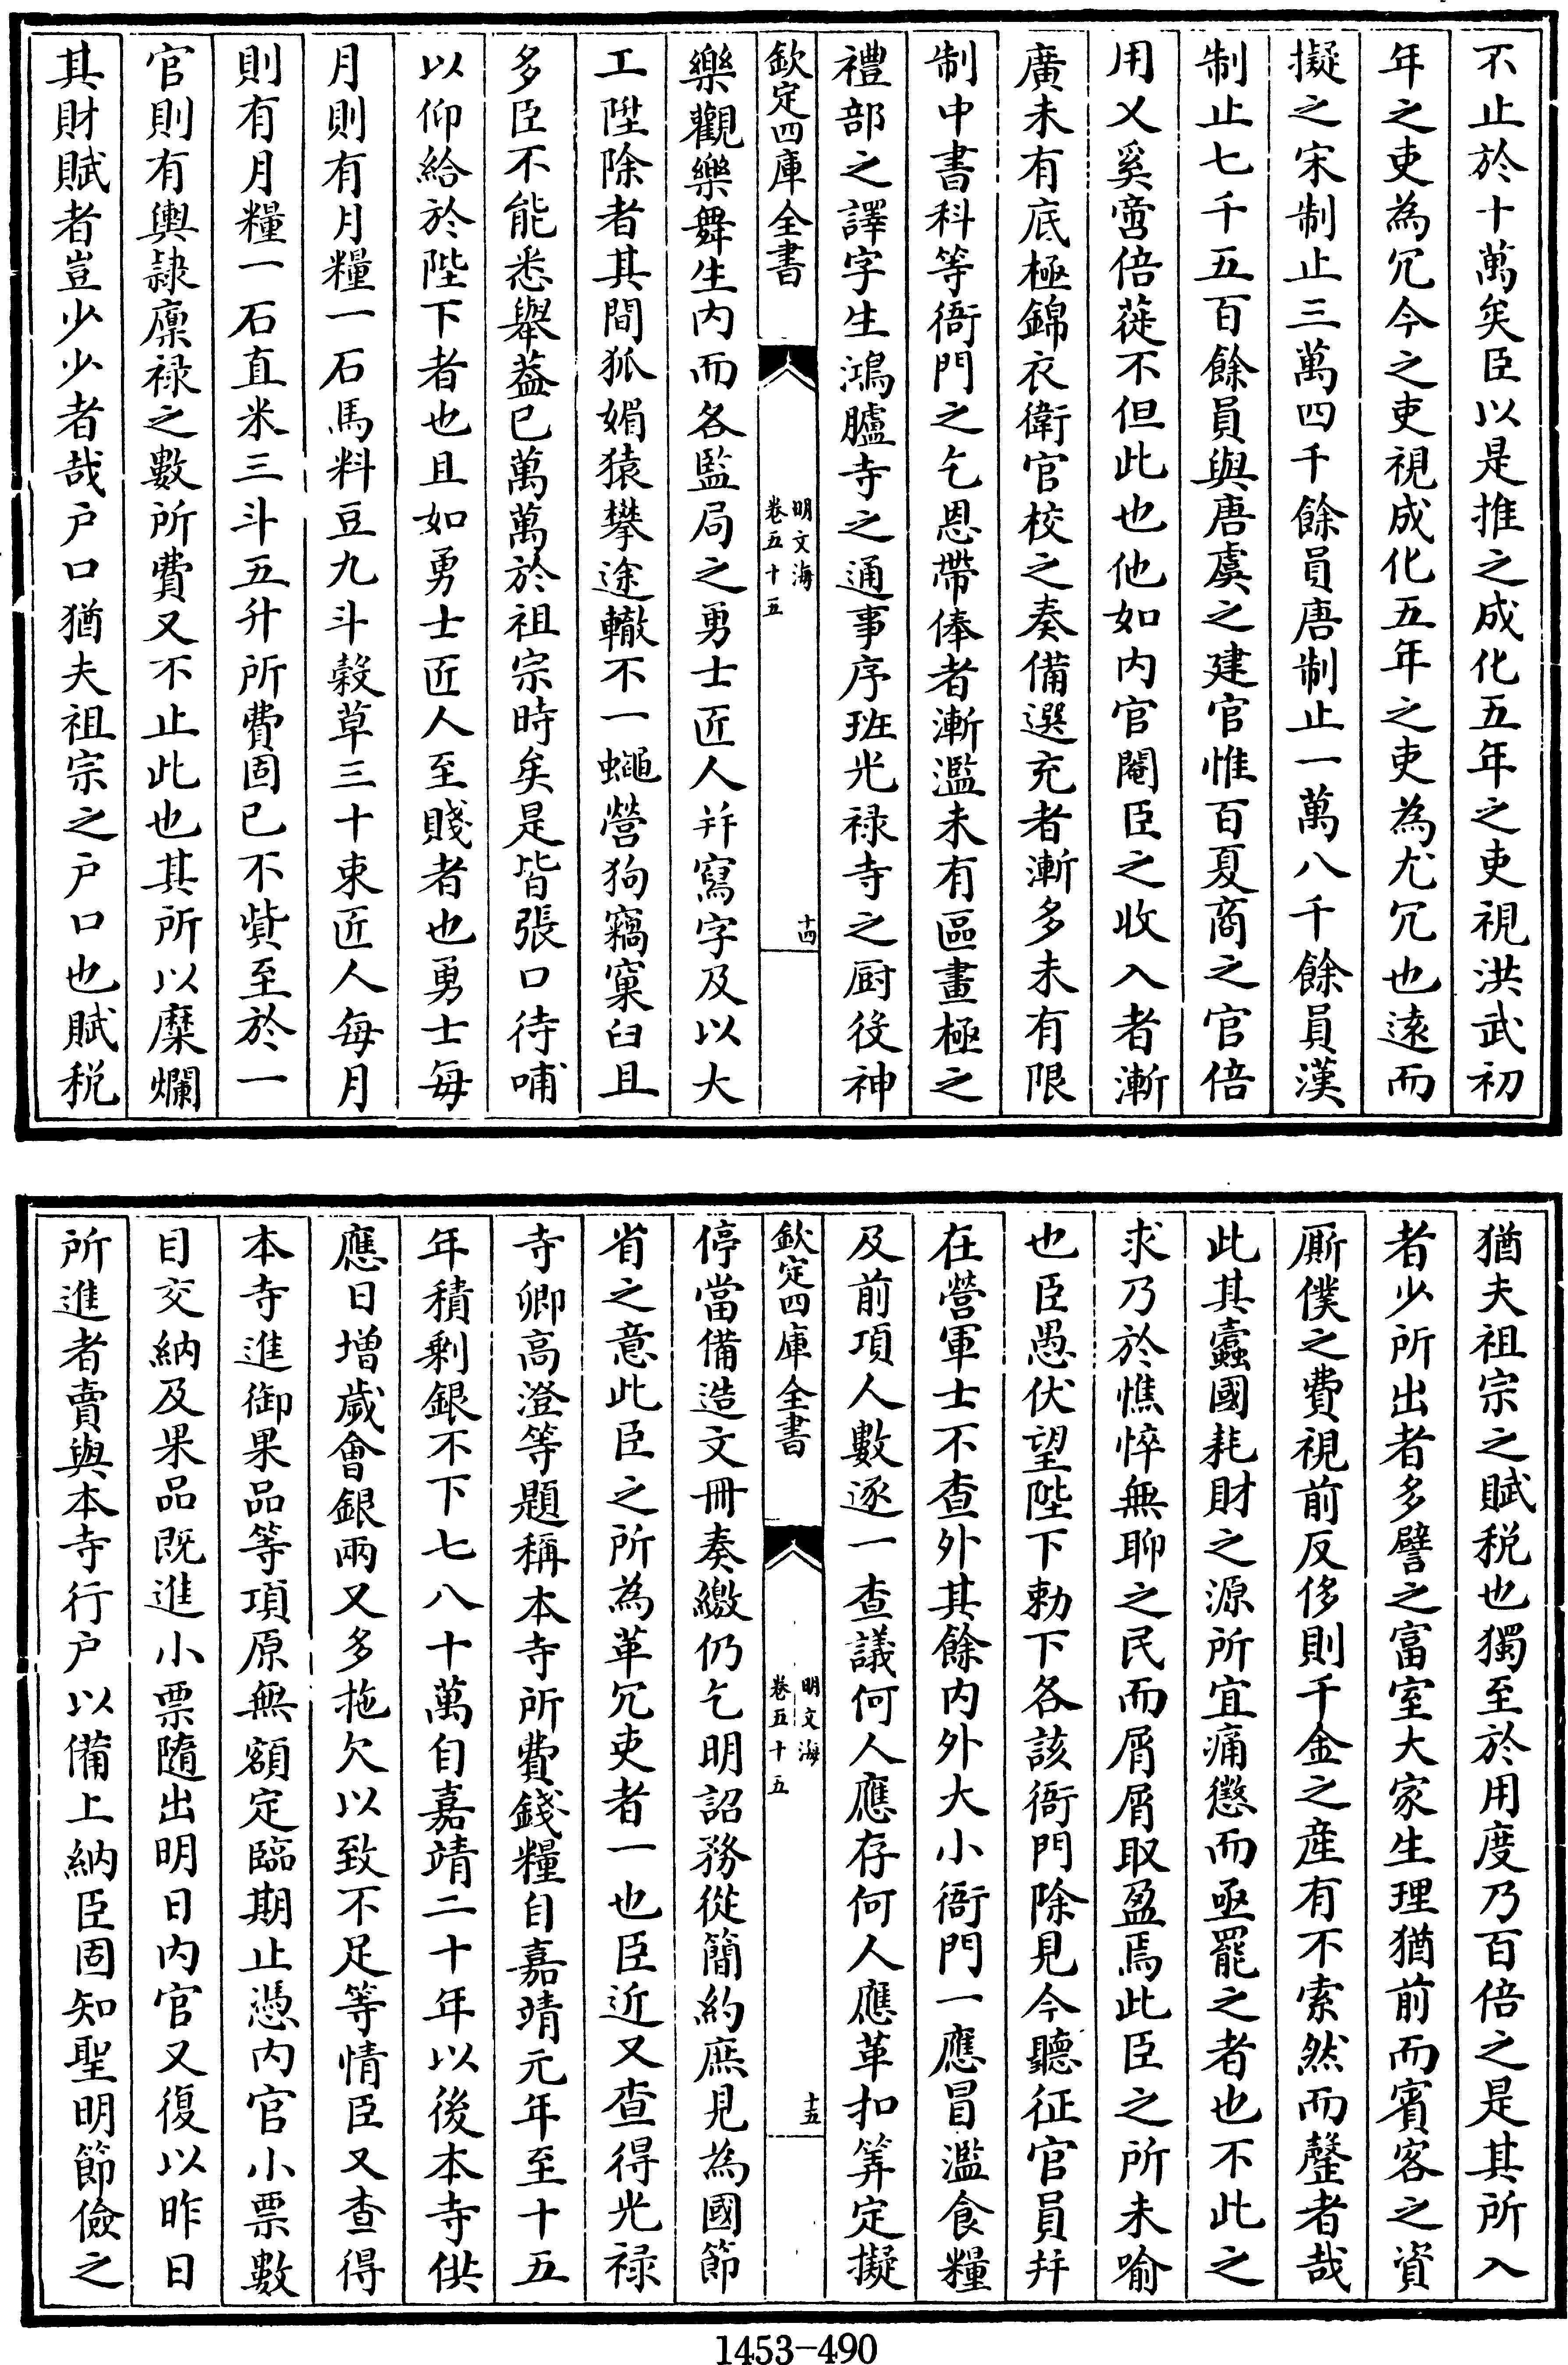 不止於十萬矣臣以是推之成化五年之吏視洪武初
年之吏為冗今之吏視成化五年之吏為尤冗也遠而
擬之宋制止三萬四千餘員唐制止一萬八千餘員漢
制止七千五百餘員與唐虞之建官惟百夏商之官倍
用乂奚啻倍蓰不但此也他如内官閹臣之收入者漸
廣未有底極錦衣衛官校之奏備選充者漸多未有限
制中書科等衙門之乞恩帶俸者漸濫未有區畫極之
禮部之譯字生鴻臚寺之通事序班光禄寺之厨役神
欽定四庫全書
明文海
卷五十五
十四
樂觀樂舞生内而各監局之勇士匠人并寫字及以大
工陞除者其間狐媚猿攀途轍不一蠅營狗竊窠臼且
多臣不能悉舉葢已萬萬於祖宗時矣是皆張口待哺
以仰給於陛下者也且如勇士匠人至賤者也勇士每
月則有月糧一石馬料豆九斗穀草三十束匠人每月
則有月糧一石直米三斗五升所費固已不貲至於一
官則有輿隷廪禄之數所費又不止此也其所以糜爛
其財賦者豈少少者哉户口猶夫祖宗之户口也賦税
猶夫祖宗之賦税也獨至於用度乃百倍之是其所入
者少所出者多譬之富室大家生理猶前而賓客之資
厮僕之費視前反侈則千金之産有不索然而罄者哉
此其蠧國耗財之源所宜痛懲而亟罷之者也不此之
求乃於憔悴無聊之民而屑屑取盈焉此臣之所未喻
也臣愚伏望陛下勅下各該衙門除見今聽征官員并
在營軍士不查外其餘内外大小衙門一應冒濫食糧
及前項人數逐一查議何人應存何人應革扣筭定擬
欽定四庫全書
明文海
卷五十五
十五
停當備造文冊奏繳仍乞明詔務從簡約庶見為國節
省之意此臣之所為革冗吏者一也臣近又查得光禄
寺卿高澄等題稱本寺所費錢糧自嘉靖元年至十五
年積剩銀不下七八十萬自嘉靖二十年以後本寺供
應日增歲會銀兩又多拖欠以致不足等情臣又查得
本寺進御果品等項原無額定臨期止憑内官小票數
目交納及果品既進小票隨出明日内官又復以昨日
所進者賣與本寺行户以備上納臣固知聖明節儉之
1453-490